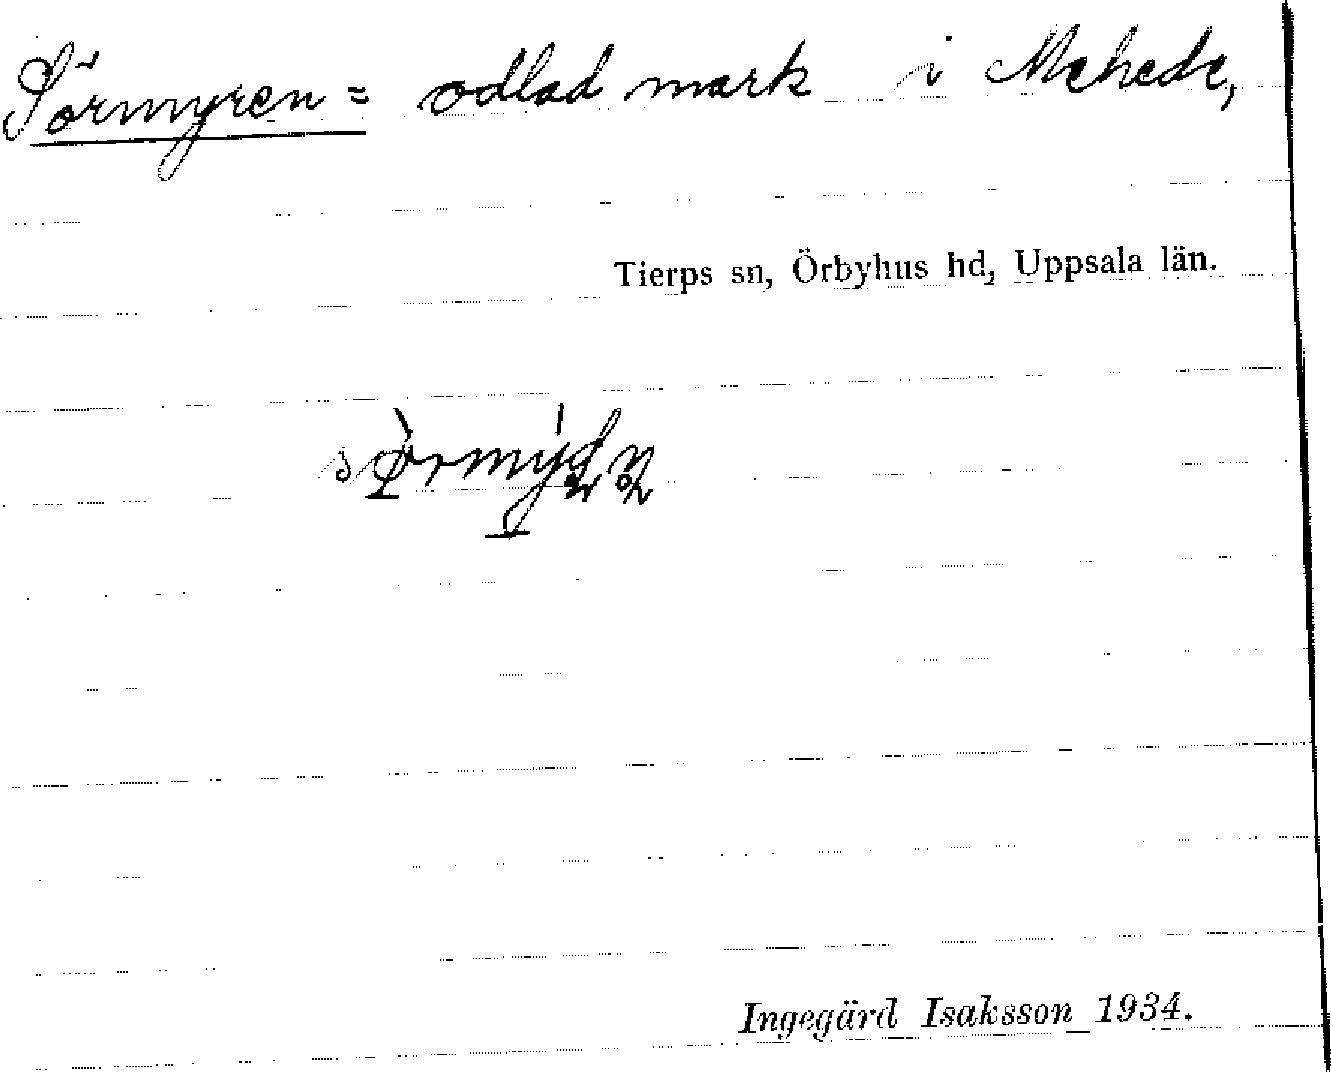 Sörmyren = odlad mark i Mehede,
Tierps sn, Örbyhus hd, Uppsala län.
Ingegärd Isaksson 1934.